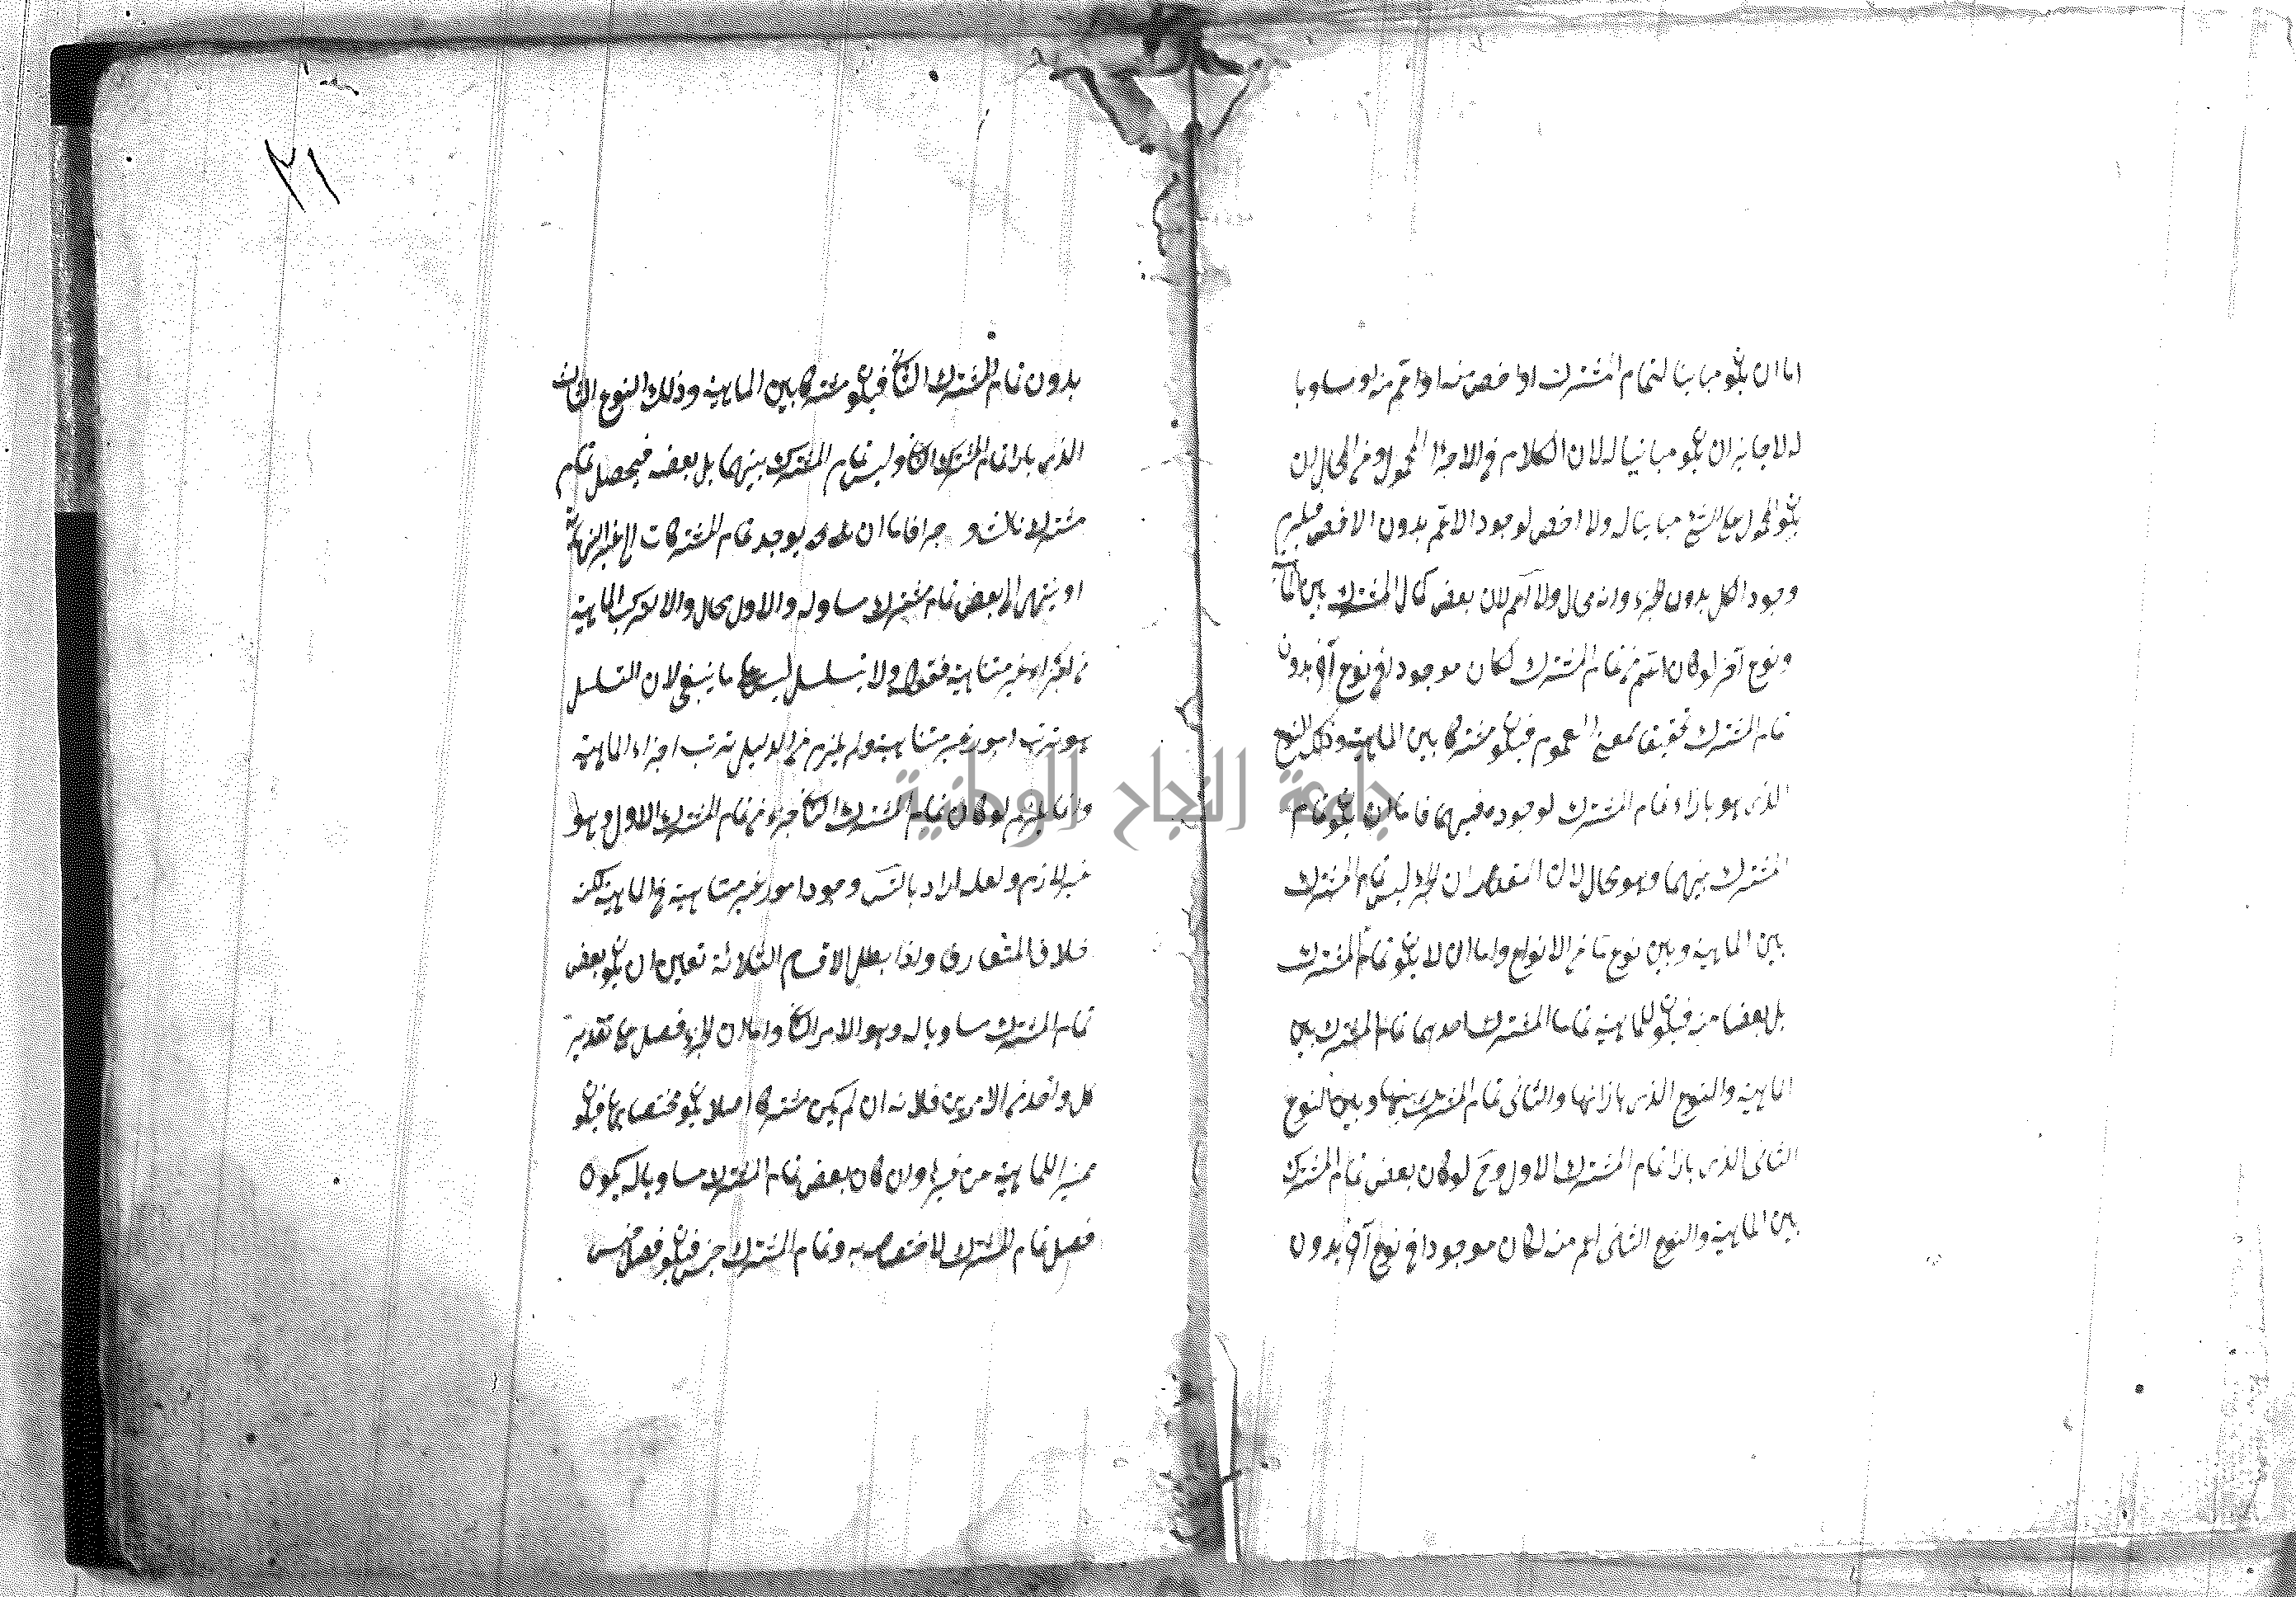 اما ان يكون مباينا لتمام المشترك او اخص منه او اعم منه او مساويا
له لا جايز ان يكون مباينا له لان الكلام في الاجزا المحمولة ومن المحال ان
يكون المحمول على الشئ مباينا له ولا اخص لوجود الاعم بدون الاخص فيلزم
وجود الكل بدون الجزء وانه محال ولا اعم لان بعض تمام المشترك بين الماهية
ونوع آخر لو كان اعم من تمام المشترك لكان موجودا في نوع آخر بدون
تمام المشترك تحقيقا لمعنى العموم فيكون مشتركا بين الماهية وذلك النوع
الذى هو بازاء تمام المشترك لوجوده فيهما فاما ان يكون تمام
المشترك بينهما وهو محال لان المقدر ان الجزء ليس تمام المشترك
بين الماهية وبين نوع ما من الانواع واما ان لا يكون تمام المشترك
بل بعضا منه فيكون للماهية تماما المشترك احدهما تمام المشترك بين
الماهية والنوع الذى بازائها والثانى تمام المشترك بينها وبين النوع
الثانى الذى بازا تمام المشترك الاول وح لو كان بعض تمام المشترك
بين الماهية والنوع الثانى اعم منه لكان موجودا في نوع آخر بدون
٢١
بدون تمام المشترك الثانى فيكون مشتركا بين الماهية وذلك النوع الثالث
الذى بازا تمام المشترك الثانى وليس تمام المشترك بينهما بل بعضه فيحصل تمام
مشترك ثالث و جرا فاما ان يوجد تمام المشتركات الى غير النهاية
او ينتهى الى بعض تمام مشترك مساو له والاول محال والا لتركب الماهية
من اجزاء غير متناهية فقوله ولا يتسلسل ليس على ما ينبغى لان التسلسل
هو ترتب امور غير متناهية ولم يلزم من الدليل ترتب اجزاء الماهية
وانما يلزم لو كان تمام المشترك الثانى جزء من تمام المشترك الاول وهو
غير لازم ولعله اراد بالتس وجود امور غير متناهية في الماهية لكنه
خلاف المتعارف واذا بطل الاقسام الثلاثة تعين ان يكون بعض
تمام المشترك مساويا له وهو الامر الثانى واما ان الجزء فصل على تقدير
كل واحد من الامرين فلانه ان لم يكن مشتركا اصلا يكون مختصا بها فيكون
مميزا للماهية عن غيرها وان كان بعض تمام المشترك مساويا له يكون
فصل تمام المشترك لاختصاصه به وتمام المشترك جنس فيكون فصل جنس
جامعة النجاح الوطنية